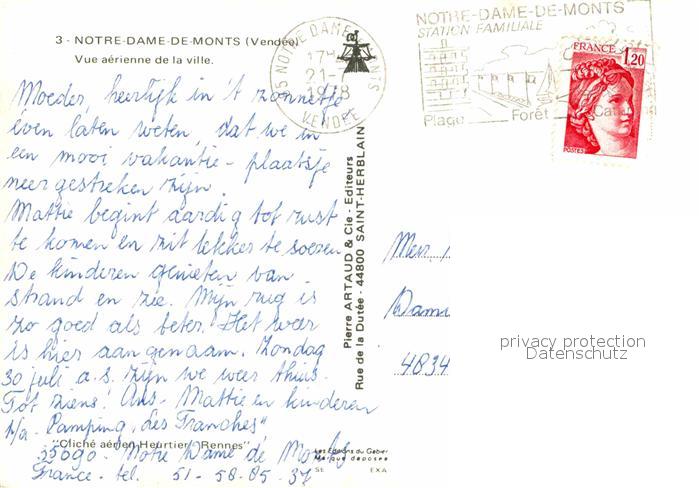 3 - NOTRE-DAME-DE-MONTS (Vendée)
Vue aérienne de la ville.
85 NOTRE DAME MONTS
17H
21-7
1978
VENDÉE
NOTRE-DAME-DE-MONTS
STATION FAMILIALE
Plage Forêt
FRANCE 1,20
POSTES
Moeder, heerlijk in 't zonnetje
even laten weten dat we in
een mooi vakantie-plaatsje
neergestreken zijn.
Mattie begint aardig tot rust
te komen en zit lekker te soezen
De kinderen genieten van
strand en zee. Mijn rug is
zo goed als beter! Het weer
is hier aangenaam. Zondag
30 juli a.s. zijn we weer thuis.
Tot ziens! Ans-Mattie en kinderen
p/a. Camping "Les Tranches"
"Cliché aérien Heurtier Rennes"
Notre Dame de Monts
France. tel. 51-58-85-37
Pierre ARTAUD & Cie - Editeurs
Rue de la Dutée - 44800 SAINT-HERBLAIN
Mevr
4834
privacy protection
Datenschutz
Les Editions du Gabier
Marque déposée
SE EXA